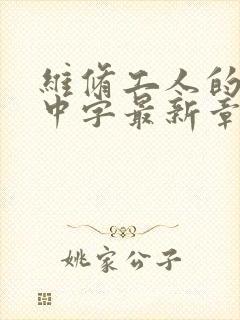 維脩工人的
中字最新章
姚家公子